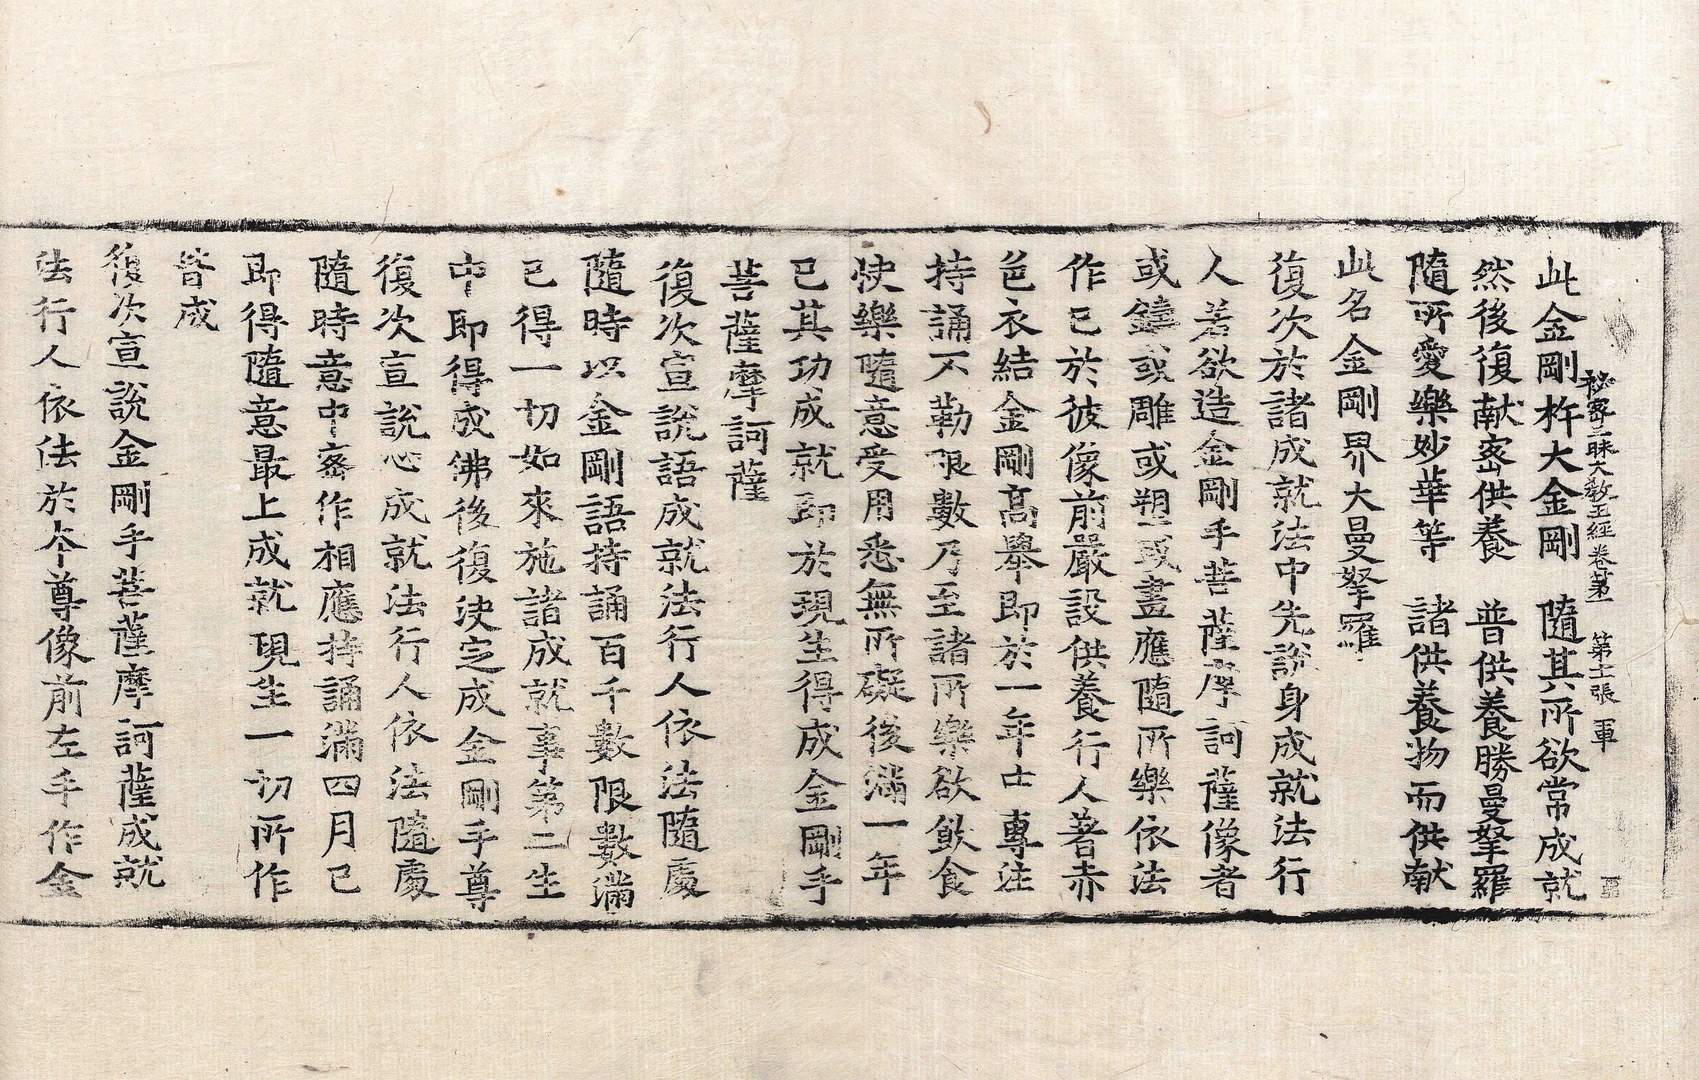 秘密三昧大教王經卷第一　第十一張　軍
此金剛杵大金剛　隨其所欲常成就
然後復献宻供養　普供養勝曼拏羅
隨所愛樂妙華等　諸供養物而供献
此名金剛界大曼拏羅
復次於諸成就法中先說身成就法行
人若欲造金剛手菩薩摩訶薩像者
或鑄或雕或塑或畫應隨所樂依法
作已於彼像前嚴設供養行人著赤
色衣結金剛高舉即於一年中專注
持誦不勒限數乃至諸所樂欲飲食
快樂隨意受用悉無所礙後滿一年
已其功成就即於現生得成金剛手
菩薩摩訶薩
復次宣說語成就法行人依法隨處
隨時以金剛語持誦百千數限數滿
已得一切如來施諸成就事第二生
中即得成佛後復決定成金剛手尊
復次宣說心成就法行人依法隨處
隨時意中宻作相應持誦滿四月已
即得隨意最上成就現生一切所作
皆成
復次宣說金剛手菩薩摩訶薩成就
法行人依法於本尊像前左手作金